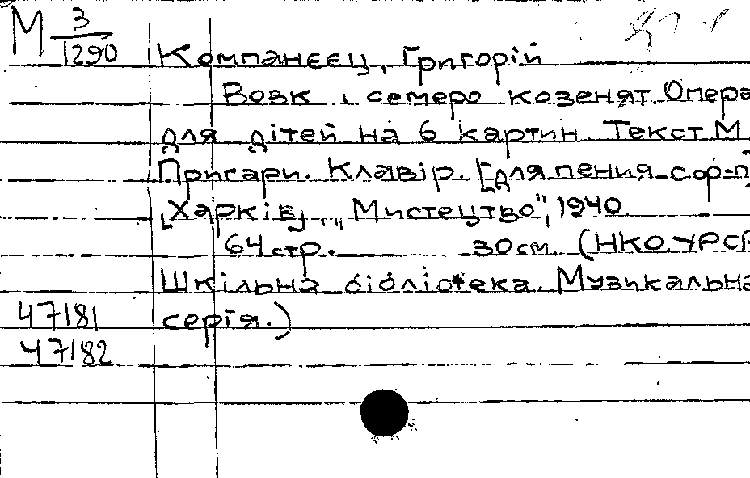 М 3/1290
Компанєєц, Григорій
Вовк і семеро козенят. Опера
для дітей на 6 картин. Текст М.
Присари. Клавір. [Для пения-сор-п
[Харків], „Мистецтво", 1940
64 стр. 30 см. (НКО УРСР
Шкільна бібліотека. Музикальна
серія.)
47181
47182